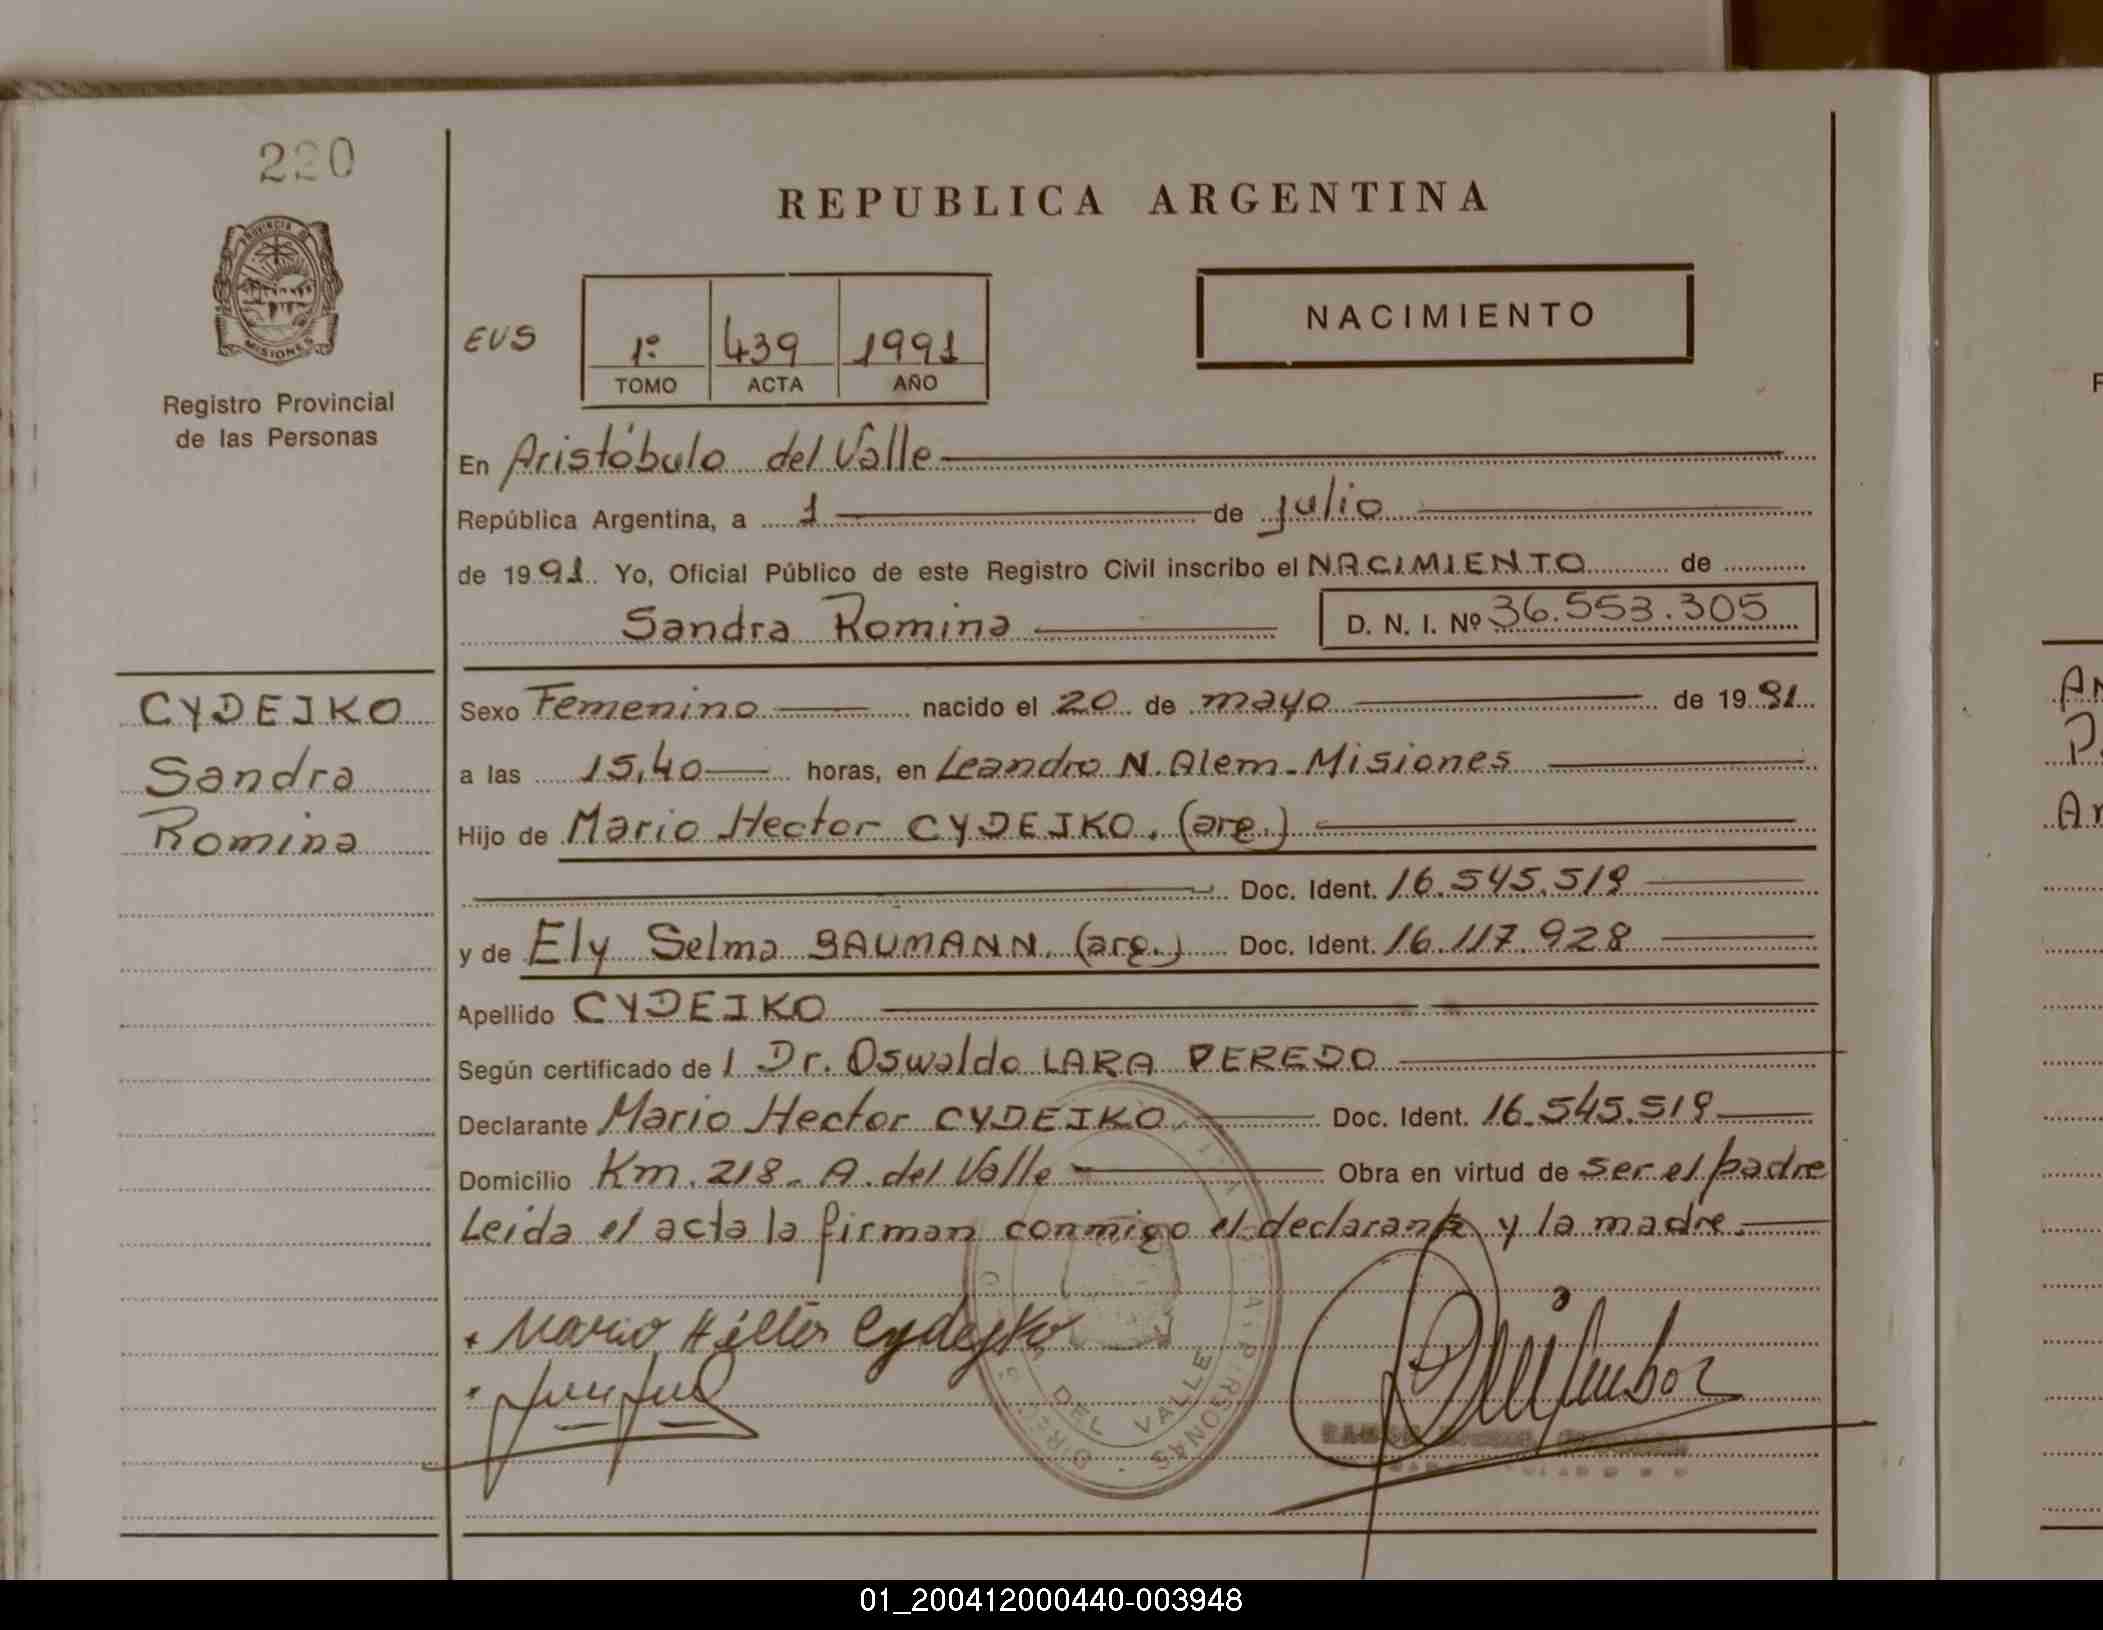 220
PROVINCIA DE
MISIONES
Registro Provincial
de las Personas
REPUBLICA ARGENTINA
NACIMIENTO
EUS
1º 439 1991
TOMO ACTA AÑO
En Aristóbulo del Valle
República Argentina, a 1 de julio
de 1991 Yo, Oficial Público de este Registro Civil inscribo el NACIMIENTO de
Sandra Romina D. N. I. Nº 36.553.305
CYDEJKO
Sandra
Romina
Sexo Femenino nacido el 20 de mayo de 1991
a las 15,40 horas, en Leandro N. Alem - Misiones
Hijo de Mario Hector CYDEJKO. (arg.)
Doc. Ident. 16.545.519
y de Ely Selma BAUMANN. (arg.) Doc. Ident. 16.117.928
Apellido CYDEJKO
Según certificado de l Dr. Oswaldo LARA PEREDO
Declarante Mario Hector CYDEJKO. Doc. Ident. 16.545.519
Domicilio Km. 218 - A. del Valle Obra en virtud de ser el padre
Leida el acta la firman conmigo el declarante y la madre.
Mario Héctor Cydejko
DEL VALLE
PERSONAS
01_200412000440-003948